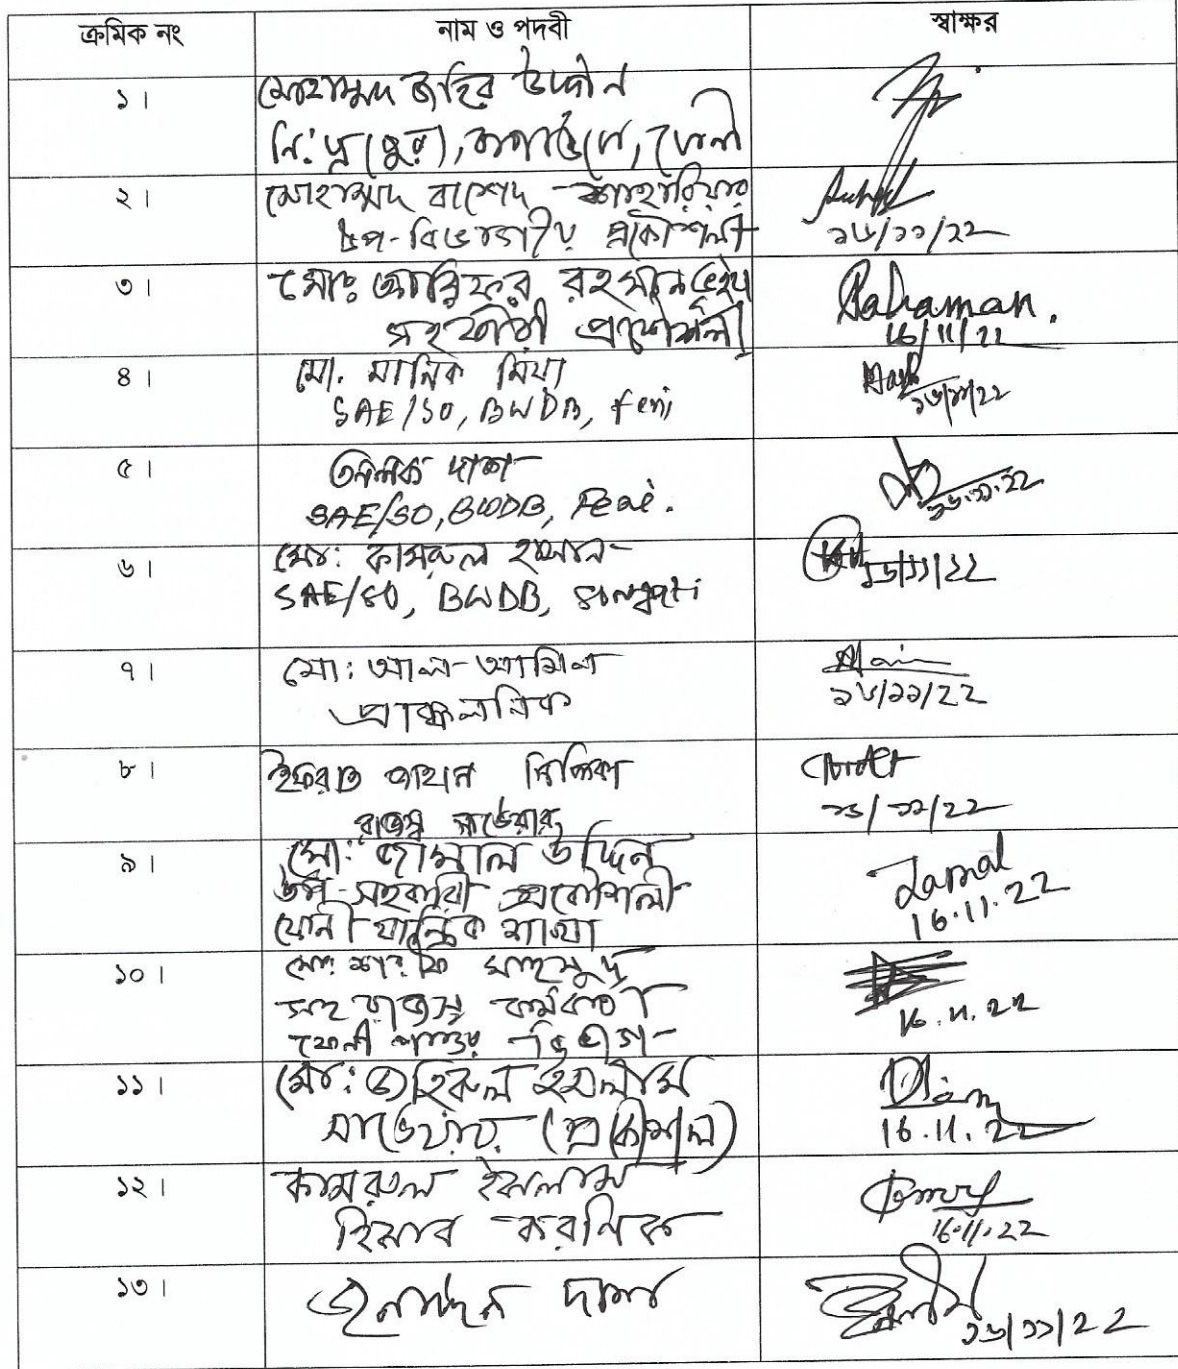 ক্রমিক নং নাম ও পদবী স্বাক্ষর
১। মোহাম্মদ জহির উদ্দীন
নিঃ প্রঃ (পুর), বাপাউবো, ফেনী
২। মোহাম্মদ রাশেদ শাহারিয়ার
উপ-বিভাগীয় প্রকৌশলী ১৬/১১/২২
৩। মোঃ আরিফুর রহমান ভূইয়া Rahaman.
সহকারী প্রকৌশলী 16/11/22
৪। মো. মানিক মিয়া
SAE/SO, BWDB, feni ১৬/১১/২২
৫। দাশ
SAE/SO, BWDB, Feni. ১৬.১১.২২
৬। মো: কামরুল হাসান
SAE/SO, BWDB, ১৬/১১/২২
৭। মো: আল-আমিন
প্রাক্কলনিক ১৬/১১/২২
৮। ইফরাত জাহান
রাজস্ব সার্ভেয়ার ১৬/১১/২২
৯। মো: জামাল উদ্দিন Jamal
উপ-সহকারী প্রকৌশলী 16.11.22
ফেনী যান্ত্রিক শাখা
১০। মোঃ শরীফ মাহমুদ
সহ রাজস্ব কর্মকর্তা 16.11.22
ফেনী পওর বিভাগ
১১। মো: জহিরুল ইসলাম
সার্ভেয়ার (প্রকৌশল) 16.11.22
১২। কামরুল ইসলাম
হিসাব করণিক 16.11.22
১৩। জনার্দন দাশ ১৬/১১/২২